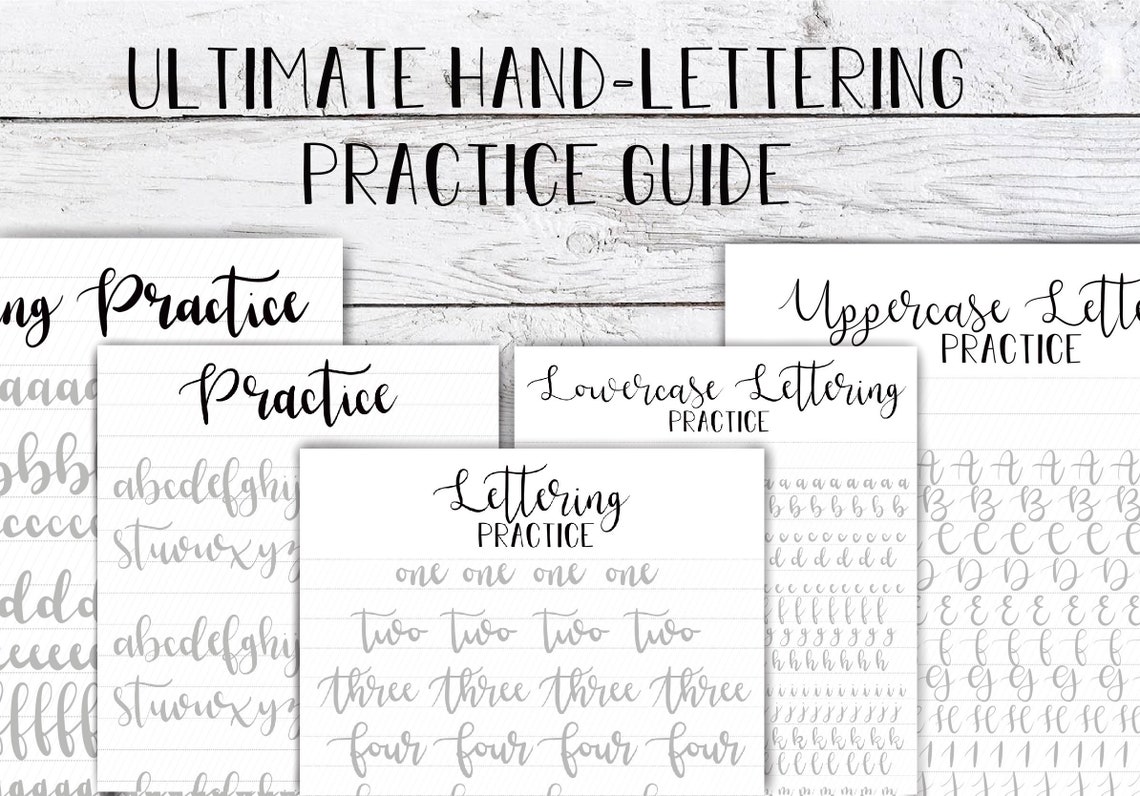 ULTIMATE HAND-LETTERING
PRACTICE GUIDE
ng Practice
aaaaa
bbb
ccccc
ddd
eeeee
fffff
aaaaa
Practice
abcdefghij
stuvwxyz
abcdefghij
stuvwxyz
Lettering
PRACTICE
one one one one
two two two two
three three three three
four four four four
Lowercase Lettering
PRACTICE
a a a a a a a a a
b b b b b b b b
c c c c c c c c c
d d d d d d
e e e e e e e e e
f f f f f f f
g g g g g g g g
h h h h h h h
i i i i i i i i i
j j j j j j j j j
k k k k k k k
l l l l l l l
m m m m m
Uppercase Lette
PRACTICE
A A A A A A
B B B B B
C C C C C C
D D D D D
E E E E E E
F F F F F
G G G G G
H H H H H
I I I I I I I